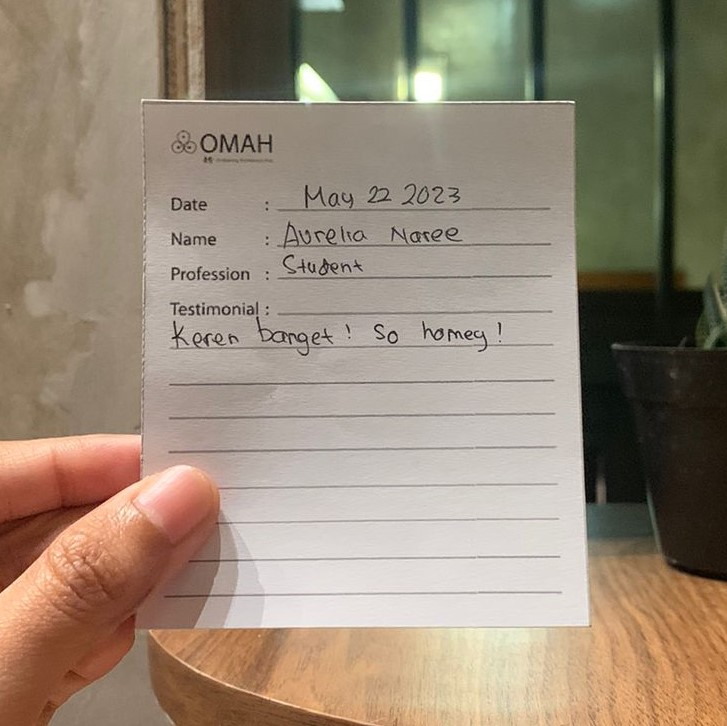 OMAH
Date : May 22 2023
Name : Aurelia Naree
Profession : Student
Testimonial :
Keren banget! So homey!